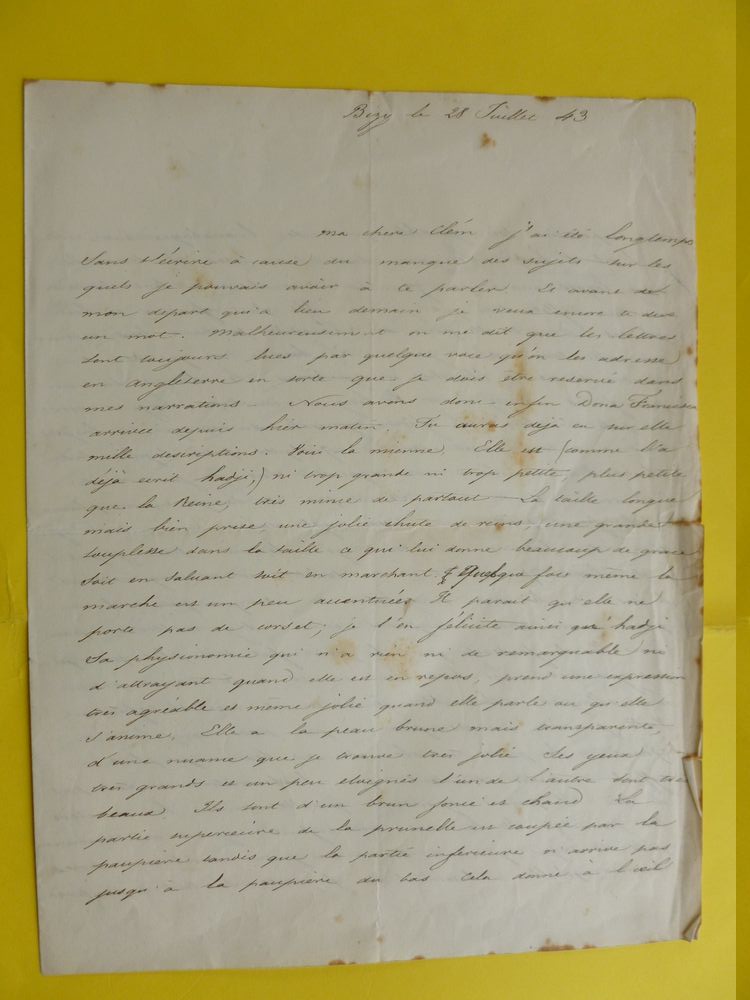 Bizy le 28 Juillet 43
ma chere Clém j'ai été longtemps
sans t'écrire à cause du manque des sujets sur les
quels je pouvais avoir à te parler. Et avant
mon depart qui a lieu demain je veux encore te dire
un mot. Malheureusement on me dit que les lettres
sont toujours lues par quelque voie qu'on les adresse
en Angleterre en sorte que je dois être reservé dans
mes narrations. Nous avons donc enfin Dona Francisca
arrivée depuis hier matin. Tu auras dejà eu sur elle
mille descriptions. Voici la mienne. Elle est (comme l'a
déjà ecrit hadji,) ni trop grande ni trop petite plus petite
que la Reine, très mince de partout La taille longue
mais bien prise une jolie chute de reins, une grande
souplesse dans la taille ce qui lui donne beaucoup de grace
soit en saluant soit en marchant & quelque fois même la
marche est un peu accentuées Il parait qu'elle ne
porte pas de corset; je l'en félicite ainsi que hadji
Sa physionomie qui n'a rien ni de remarquable ni
d'attrayant quand elle est en repos, prend une expression
très agréable et même jolie quand elle parle ou qu'elle
s'anime. Elle a la peau brune mais transparente,
d'une nuance que je trouve très jolie Ses yeux
très grands et un peu eloignés l'un de l'autre sont très
beaux. Ils sont d'un brun foncé et chaud La
partie superieure de la prunelle est coupée par la
paupière tandis que la partie inferieure n'arrive pas
jusqu'à la paupière du bas Cela donne à l'œil